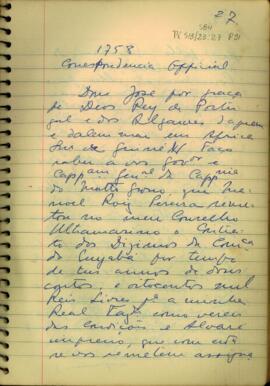 27
1758
Correspondencia Official
Dom José por graça
de Deos Rey de Portu
gal e dos Algarves daquem
e dalem mar em Africa
Snr de Guiné &ª Faço
saber a vos govor e
Cappam general da Cappnia
do Matto Grosso, que Ma
noel Roiz Pereira rema
tou no meu Conselho
Ultramarino o Contra
to dos Dizimos da Comca
do Cuyabá por tempo
de tres annos de dous
contos, e oitocentos mil
Reis Livres pª a minha
Real Fazda como vereis
das Condições e Alvará
impresso, que com esta
se vos remetem assigna